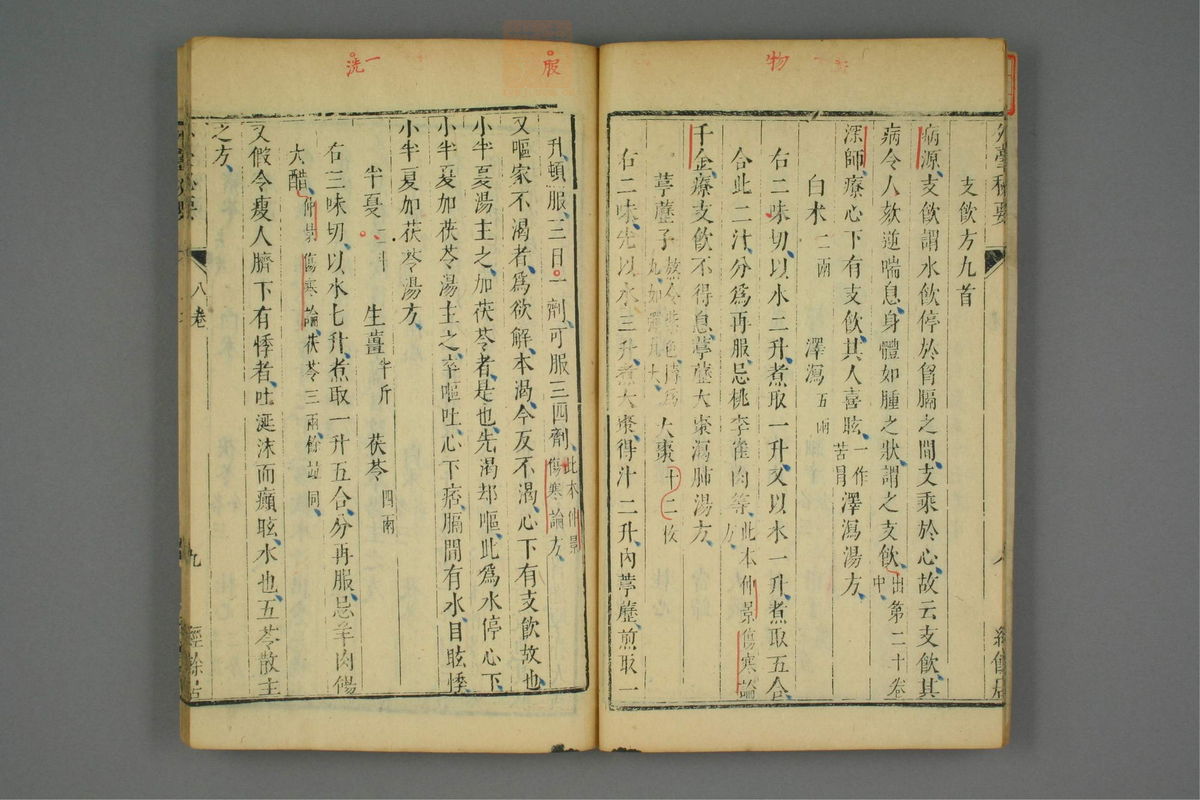 物
外臺秘要
支飲方九首
病源、支飲謂水飲停於胷膈之間、支乘於心、故云支飲、其
病令人欬逆喘息、身體如腫之狀、謂之支飲、出第二十卷中
深師、療心下有支飲、其人喜眩、一作苦冒澤瀉湯方、
白术二兩 澤瀉五兩
右二味切、以水二升、煮取一升、又以水一升、煮取五合、
合此二汁、分爲再服、忌桃李雀肉等、此本仲景傷寒論方、
千金、療支飲不得息、葶藶大棗瀉肺湯方、
葶藶子 大棗十二枚
右二味、先以水三升、煮大棗、得汁二升、內葶藶、煎取一
服
一洗
升、頓服、三日一劑、可服三四劑、此本仲景傷寒論方、
又嘔家不渴者、爲欲解、本渴、今反不渴、心下有支飲故也、
小半夏湯主之、加茯苓者是也、先渴却嘔、此爲水停心下、
小半夏加茯苓湯主之、卒嘔吐、心下痞、膈間有水、目眩悸、
小半夏加茯苓湯方、
半夏 生薑半斤 茯苓四兩
右三味切、以水七升、煮取一升五合、分再服、忌羊肉餳
大醋、仲景傷寒論、茯苓三兩餘並同、
又假令瘦人臍下有悸者、吐涎沫而癲眩、水也、五苓散主
之方、
卷八 九 經餘居